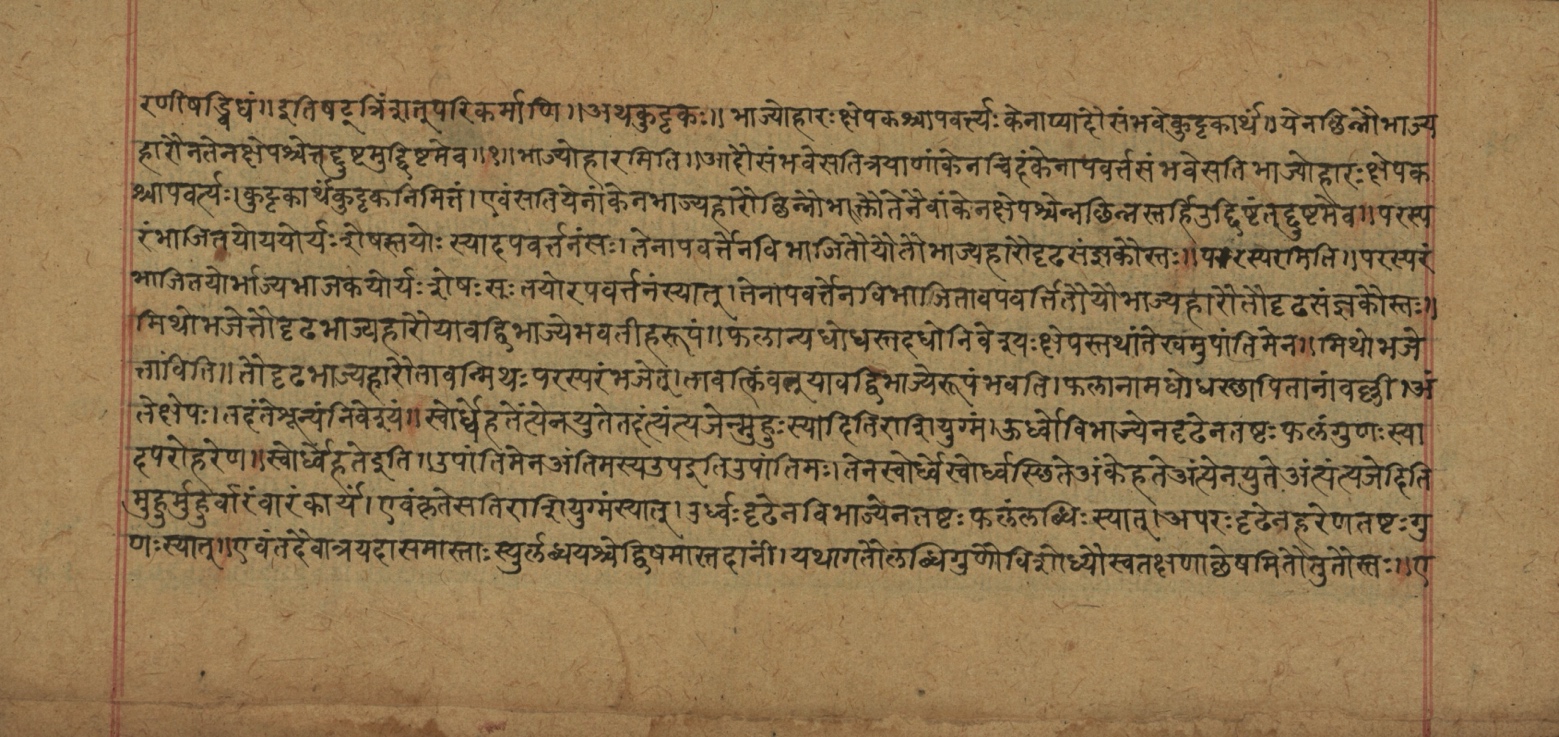 रणीषड्विधं॥इतिषट्त्रिंशत्परिकर्माणि॥अथकुट्टकः॥भाज्योहारःक्षेपकश्चापवर्त्त्यःकेनाप्यादौसंभवेकुट्टकार्थं॥येनछिन्नौभाज्य
हारौनतेनक्षेपश्चेत्तद्दुष्टमुद्दिष्टमेव॥१॥भाज्योहारमिति॥आदौसंभवेसतित्रयाणांकेनचिदंकेनापवर्त्तसंभवेसतिभाज्योहारःक्षेपक
श्चापवर्त्यः।कुट्टकार्थंकुट्टकनिमित्तं।एवंसतियेनांकेनभाज्यहारौछिन्नौभाक्तौतेनैवांकेनक्षेपश्चेन्नछिन्नस्तर्हिउद्दिष्टंतद्दुष्टमेव॥परस्प
रंभाजितयोययोर्यःशेषस्तयोः स्यादपवर्त्तनंसः।तेनापवर्त्तेनविभाजितौयौतौभाज्यहारौदृढसंज्ञकौस्तः॥परस्परामिति॥परस्परं
भाजितयोर्भाज्यभाजकयोर्यःशेषःसःतयोरपवर्त्तनंस्यात्।तेनापवर्त्तेनविभाजितावपवर्त्तितौयौभाज्यहारौतौदृढसंज्ञकौस्तः॥
मिथोभजेत्तौदृढभाज्यहारौयावद्विभाज्येभवतीहरूपं॥फलान्यधोधस्तदधोनिवेश्यःक्षेपस्तथांतेखमुपांतिमेन॥मिथोभजे
त्तांविति॥तौदृढभाज्यहारौतावन्मिथःपरस्परंभजेत्।तावत्किंवत्नुयावद्विभाज्येरूपंभवति।फलानामधोधस्छापितानांवल्ली।अं
तेक्षेपः।तदंतेश्रून्यंनिवेश्यं॥स्वोर्ध्वेहतेंत्येनयुतेतदंत्यंत्यजेन्मुहुःस्यादितिराशियुग्मं।ऊर्ध्वोविभाज्येनदृढेनतष्टःफलंगुणःस्या
दपरोहरेण॥स्वोर्ध्वेहतेइति॥उपांतिमेनअंतिमस्यउपइतिउपांतिमः।तेनस्वोर्ध्वेस्वोर्ध्वस्छितेअंकेहतेअंत्येनयुतेअंत्यंत्यजेदिति
मुहुर्मुहुर्वारंवारंकार्यं।एवंकृतेसतिराशियुग्मंस्यात्।उर्ध्वःदृढेनविभाज्येनतष्टःफलंलब्धिःस्यात्।अपरःदृढेनहरेणतष्टःगु
णःस्यात्॥एवंतदैवात्रयदासमास्ताःस्युर्लब्धयश्चेद्विषमास्तदानीं।यथागतौलब्धिगुणौविशोध्यौस्वतक्षणाछेषमितौतुतौस्तः॥ए